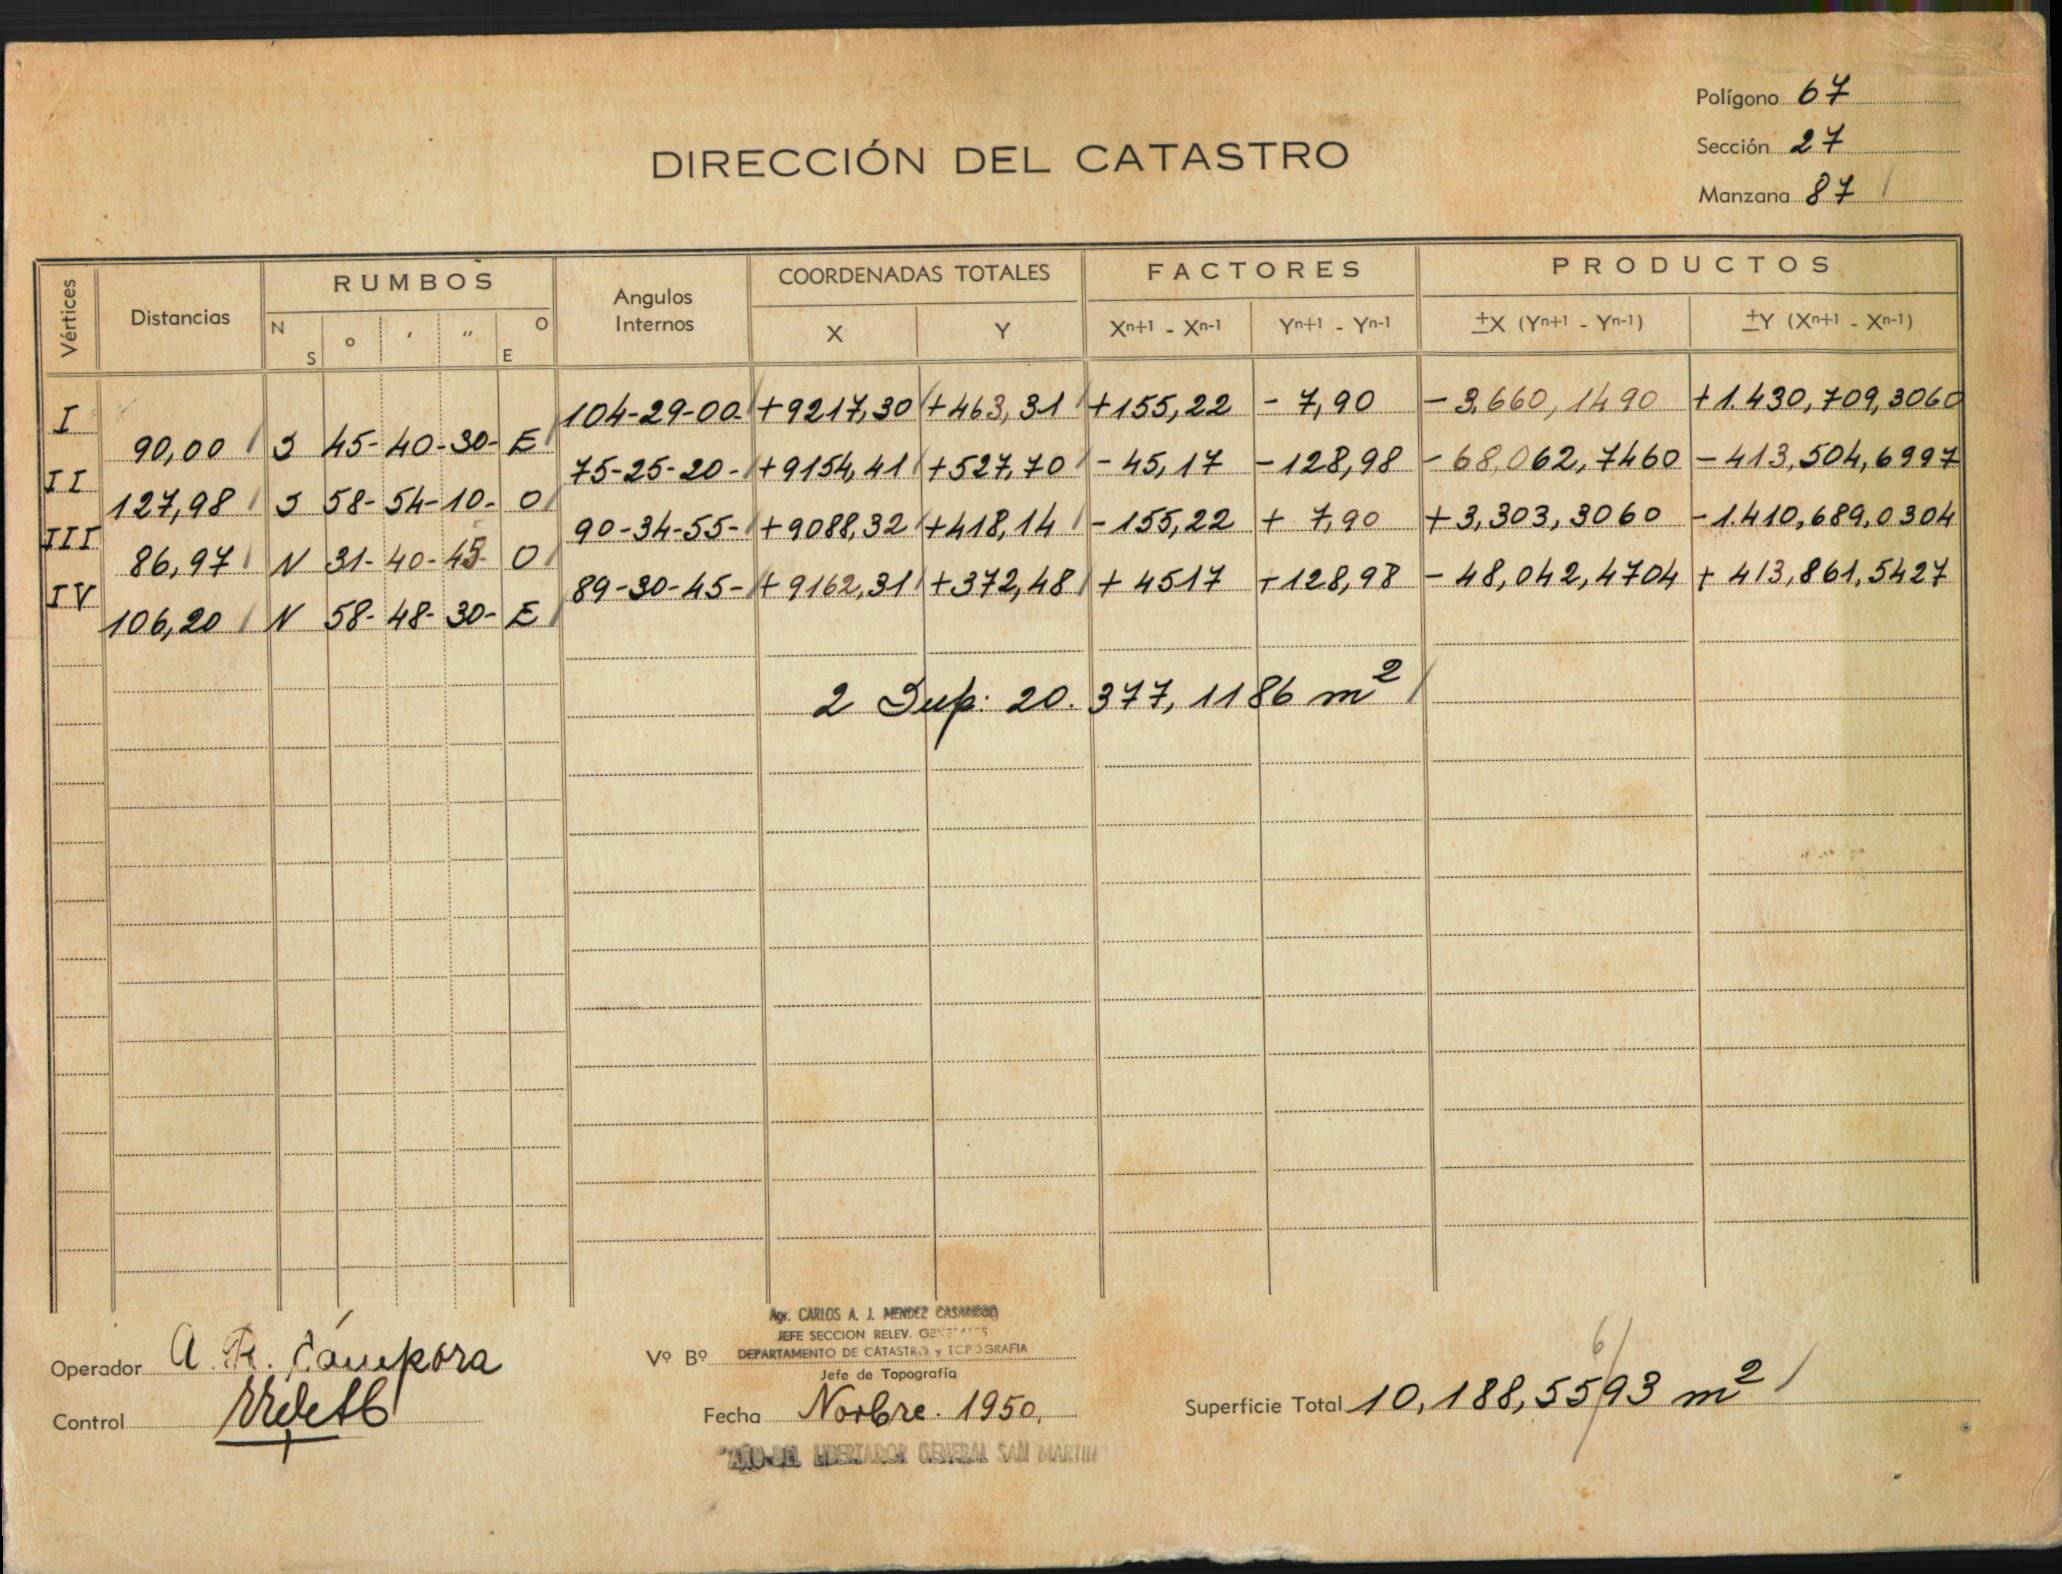 Polígono 67
Sección 27
Manzana 87
DIRECCIÓN DEL CATASTRO
Vértices Distancias RUMBOS Angulos Internos COORDENADAS TOTALES FACTORES PRODUCTOS
N S o ' " O E X Y Xn+1 - Xn-1 Yn+1 - Yn-1 ±X (Yn+1 - Yn-1) ±Y (Xn+1 - Xn-1)
I 104-29-00- +9217,30 +463,31 +155,22 - 7,90 - 3,660,1490 +1.430,709,3060
90,00 S 45- 40- 30- E
II 75-25-20- +9154,41 +527,70 - 45,17 -128,98 - 68,062,7460 - 413,504,6997
127,98 S 58- 54- 10- O
III 90-34-55- +9088,32 +418,14 -155,22 + 7,90 +3,303,3060 -1.410,689,0304
86,97 N 31- 40- 45- O
IV 89-30-45- +9162,31 +372,48 + 4517 +128,98 - 48,042,4704 + 413,861,5427
106,20 N 58- 48- 30- E
2 Sup: 20.377,1186 m2
Agr. CARLOS A. J. MENDEZ CASARIEGO
JEFE SECCION RELEV. GENERALES
Operador A. R. Cámpora Vº Bº DEPARTAMENTO DE CATASTRO y TOPOGRAFIA
Jefe de Topografía
6
Control Fecha Novbre. 1950, Superficie Total 10,188,5593 m2
"AÑO DEL LIBERTADOR GENERAL SAN MARTIN"